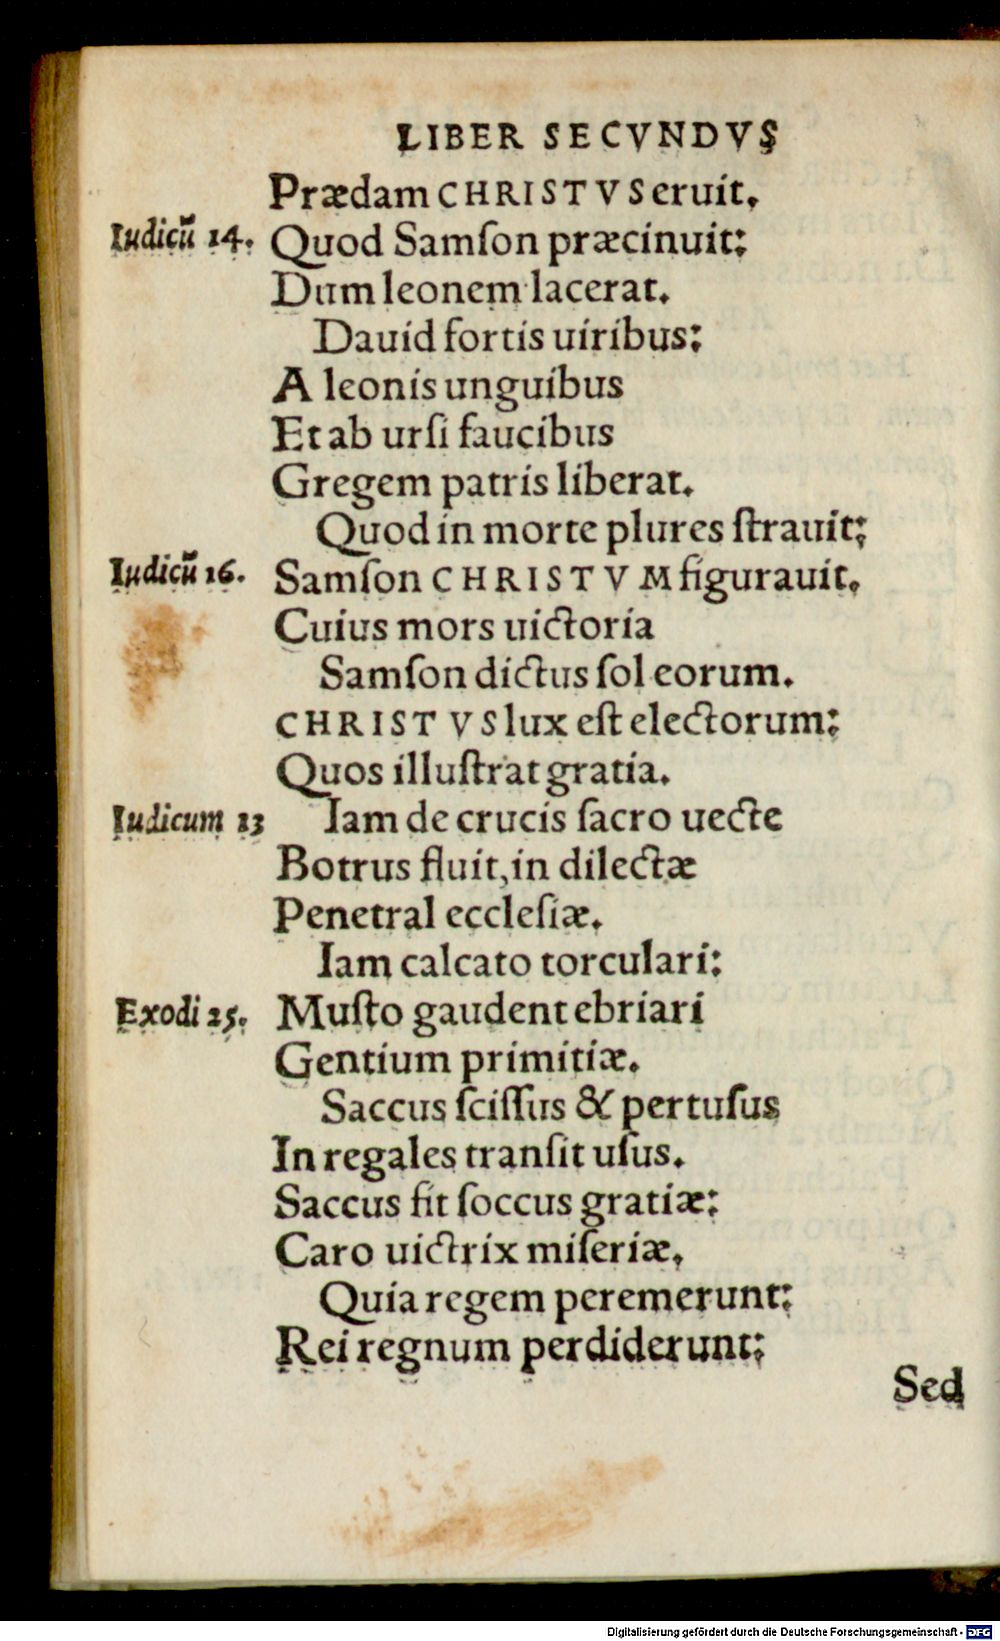 LIBER SECVNDVS
Prædam CHRISTVS eruit,
Iudicū 14. Quod Samſon præcinuit:
Dum leonem lacerat.
Dauid fortis uiribus:
A leonis unguibus
Et ab urſi faucibus
Gregem patris liberat.
Quod in morte plures ſtrauit:
Iudicū 16. Samſon CHRISTVM figurauit,
Cuius mors uictoria
Samſon dictus ſol eorum.
CHRISTVS lux eſt electorum:
Quos illuſtrat gratia.
Iudicum 13 Iam de crucis ſacro uecte
Botrus fluit, in dilectæ
Penetral eccleſiæ.
Iam calcato torculari:
Exodi 25. Muſto gaudent ebriari
Gentium primitiæ.
Saccus ſciſſus & pertuſus
In regales tranſit uſus.
Saccus fit ſoccus gratiæ:
Caro uictrix miſeriæ,
Quia regem peremerunt:
Rei regnum perdiderunt:
Sed
Digitalisierung gefördert durch die Deutsche Forschungsgemeinschaft - DFG